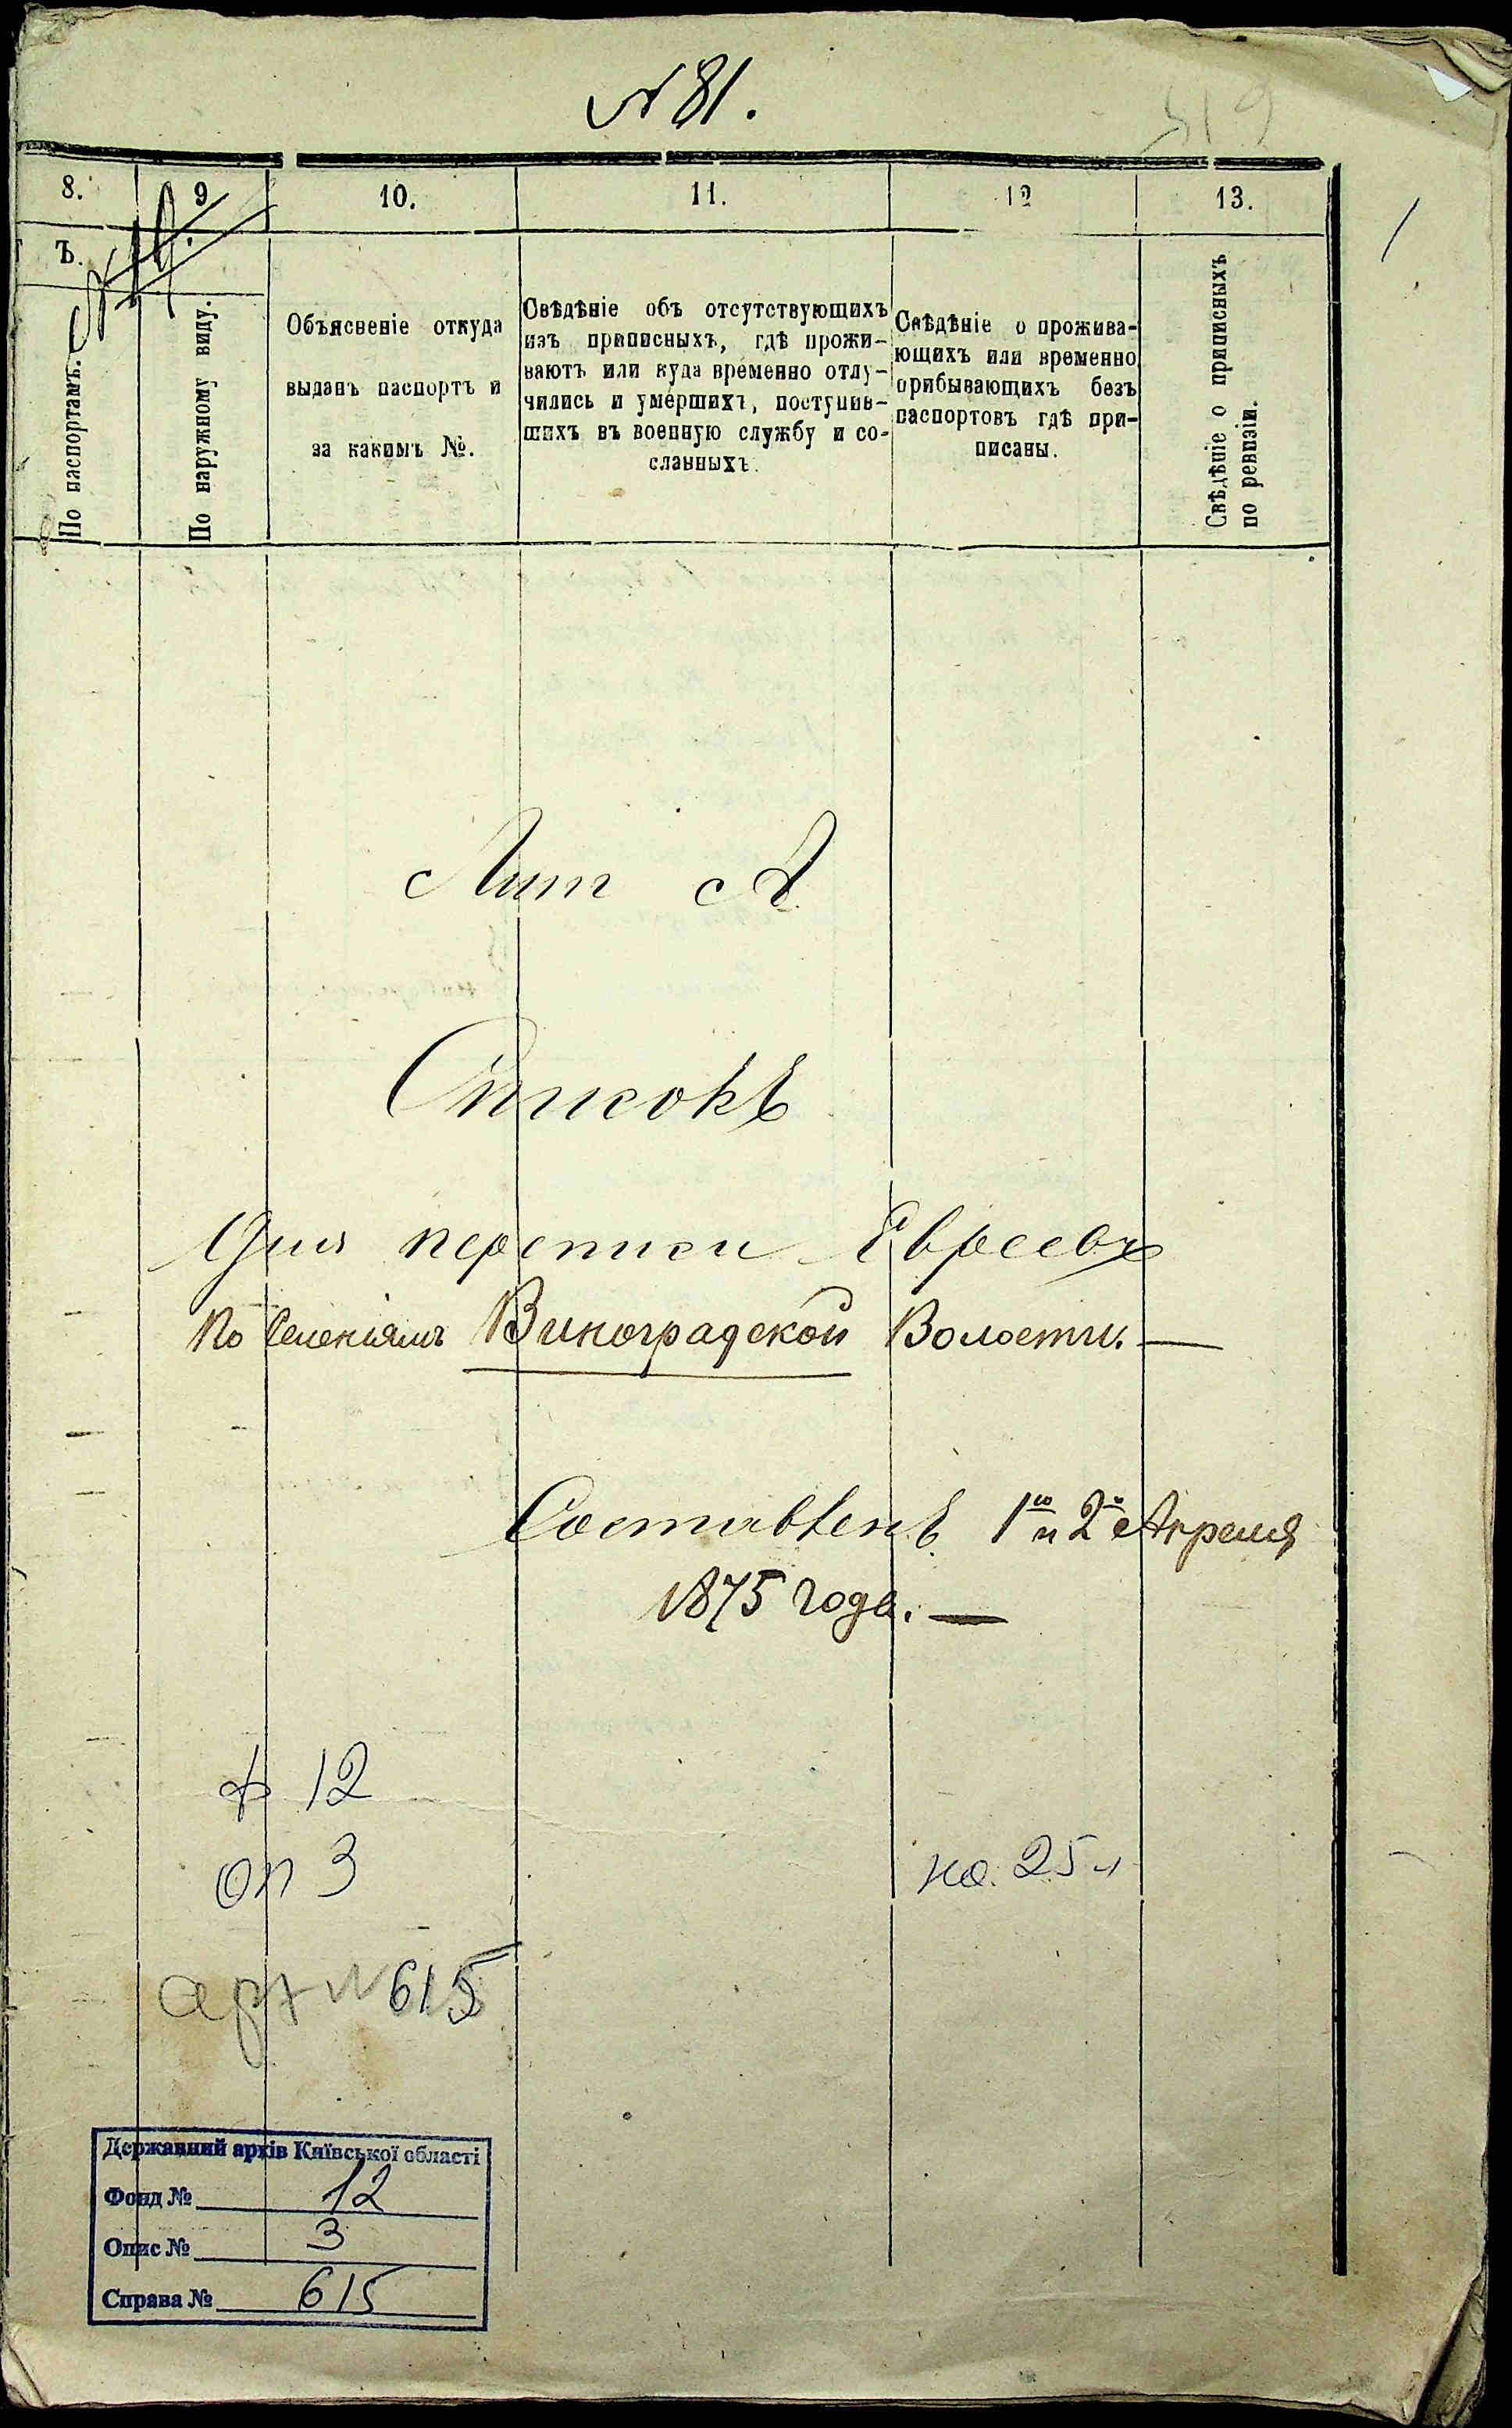 № 81.
519
8.
9
10.
11.
12
13.
1
Ъ.
№ 19.
По паспортамъ.
По наружному виду.
Объясненіе откуда
выданъ паспортъ и
за какимъ №.
Свѣдѣніе объ отсутствующихъ
изъ приписныхъ, гдѣ прожи-
ваютъ или куда временно отлу-
чились и умершихъ, поступив-
шихъ въ военную службу и со-
сланныхъ.
Свѣдѣніе о прожива-
ющихъ или временно
прибывающихъ безъ
паспортовъ гдѣ при-
писаны.
Свѣдѣніе о приписныхъ
по ревизіи.
Лит А
Списокъ
Для переписи Евреевъ
По Селеніямъ Виноградской Волости. —
Составленъ 1го и 2го Апреля
1875 года. —
ф 12
оп 3
на 25 л
арх № 615
Державний архів Київської області
Фонд № 12
Опис № 3
Справа № 615